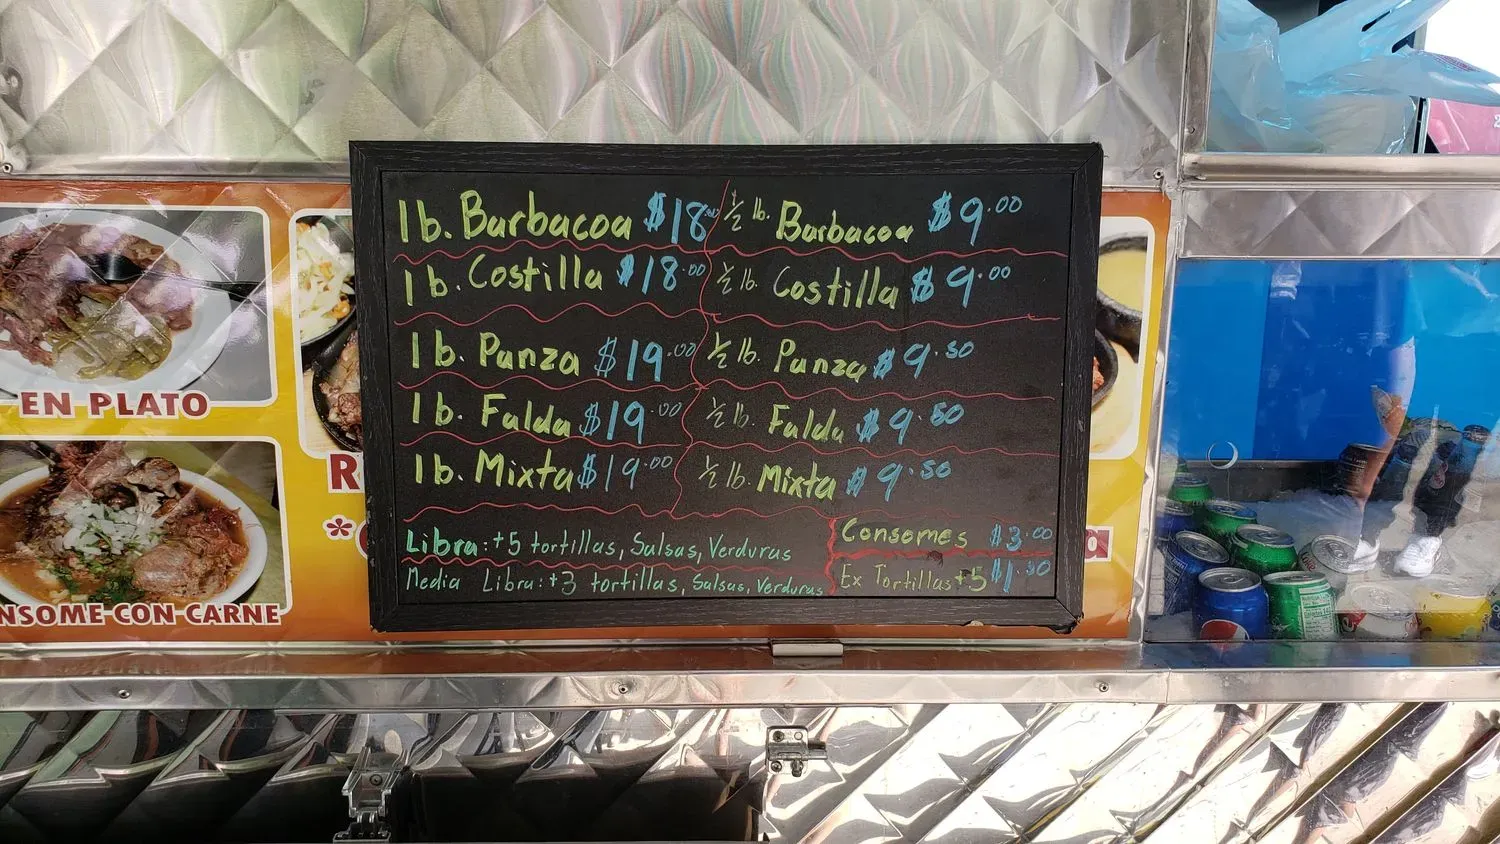 1b. Barbacoa $18.00 ½ lb. Barbacoa $9.00
1b. Costilla $18.00 ½ lb. Costilla $9.00
1b. Panza $19.00 ½ lb. Panza $9.50
1b. Falda $19.00 ½ lb. Falda $9.50
1b. Mixta $19.00 ½ lb. Mixta $9.50
Libra: +5 tortillas, Salsas, Verduras
Media Libra: +3 tortillas, Salsas, Verduras
Consomes $3.00
Ex Tortillas +5 $1.50
EN PLATO
NSOME CON CARNE